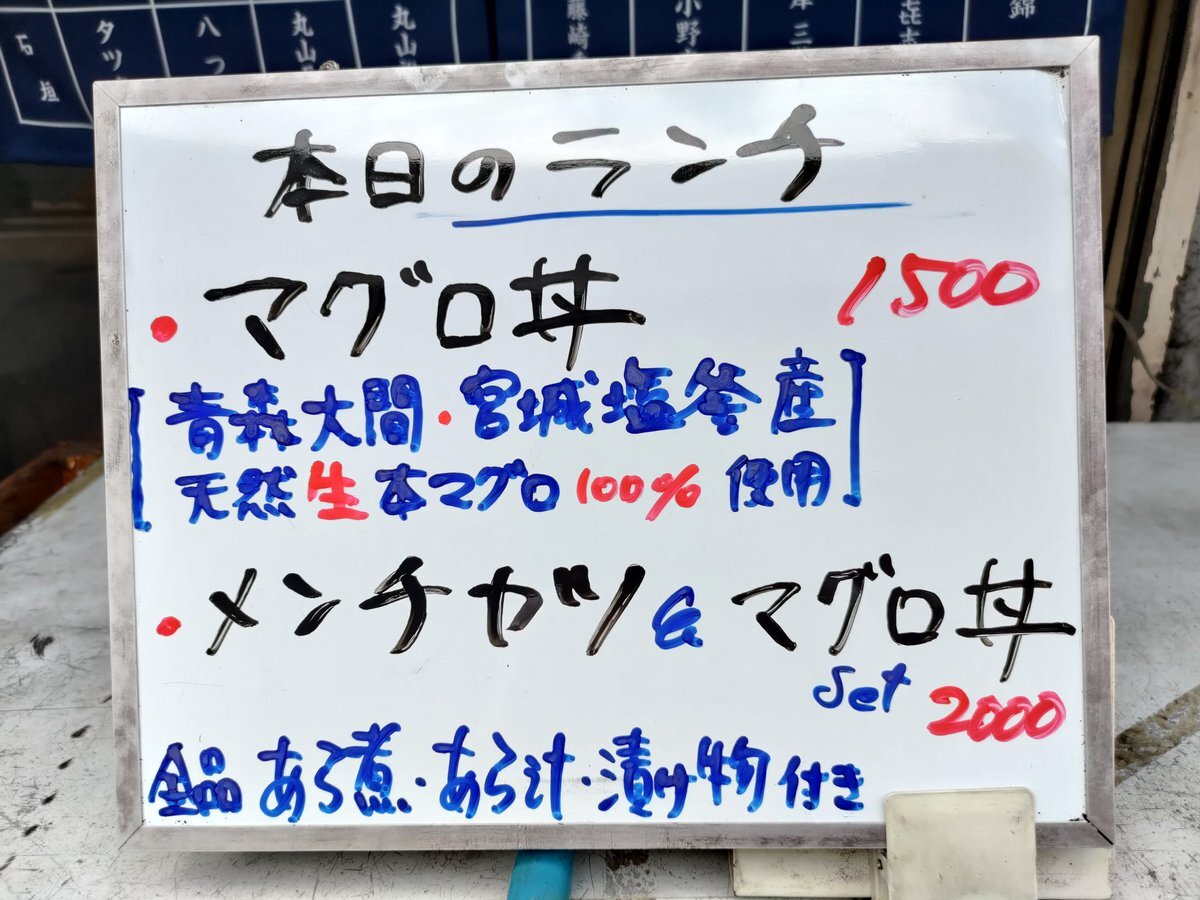 石垣
タツ
八つ
丸山
丸山
藤崎
小野
三
錦
本日のランチ
・マグロ丼 1500
[青森大間・宮城塩釜産
天然生本マグロ100%使用]
・メンチカツ&マグロ丼
set 2000
全品あら煮・あら汁・漬け物付き